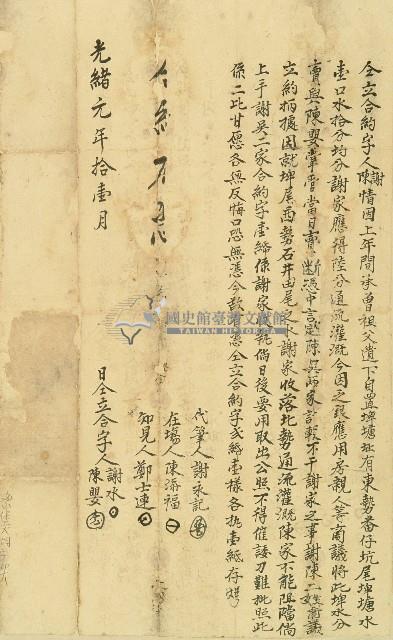 仝立合約字人謝陳情因上年間承曾祖父遺下自置埤塘址有東勢番仔坑尾埤塘水
壹口水拾分均分謝家應得陸分通流灌溉今因乏銀應用房親人等商議將此埤水分
賣與陳嬰掌管當日賣斷憑中言定陳吳兩家計較不干謝家之事謝陳二姓商議
立約柄據因就埤尾西勢石井由尾水謝家收落北勢通流灌溉陳家不能阻擋倘
上手謝吳二家合約字壹紙係謝家收執倘日後要用取出公照不得催諉刁難批照此
係二比甘愿各無反悔口恐無憑今欲有憑仝立合約字貳紙壹樣各执壹紙存炤
代筆人謝永記
在塲人陳添福
知見人鄭士連
日仝立合約字人謝水
陳嬰
光緒元年拾壹月
國史館臺灣文獻館
TAIWAN HISTORICA